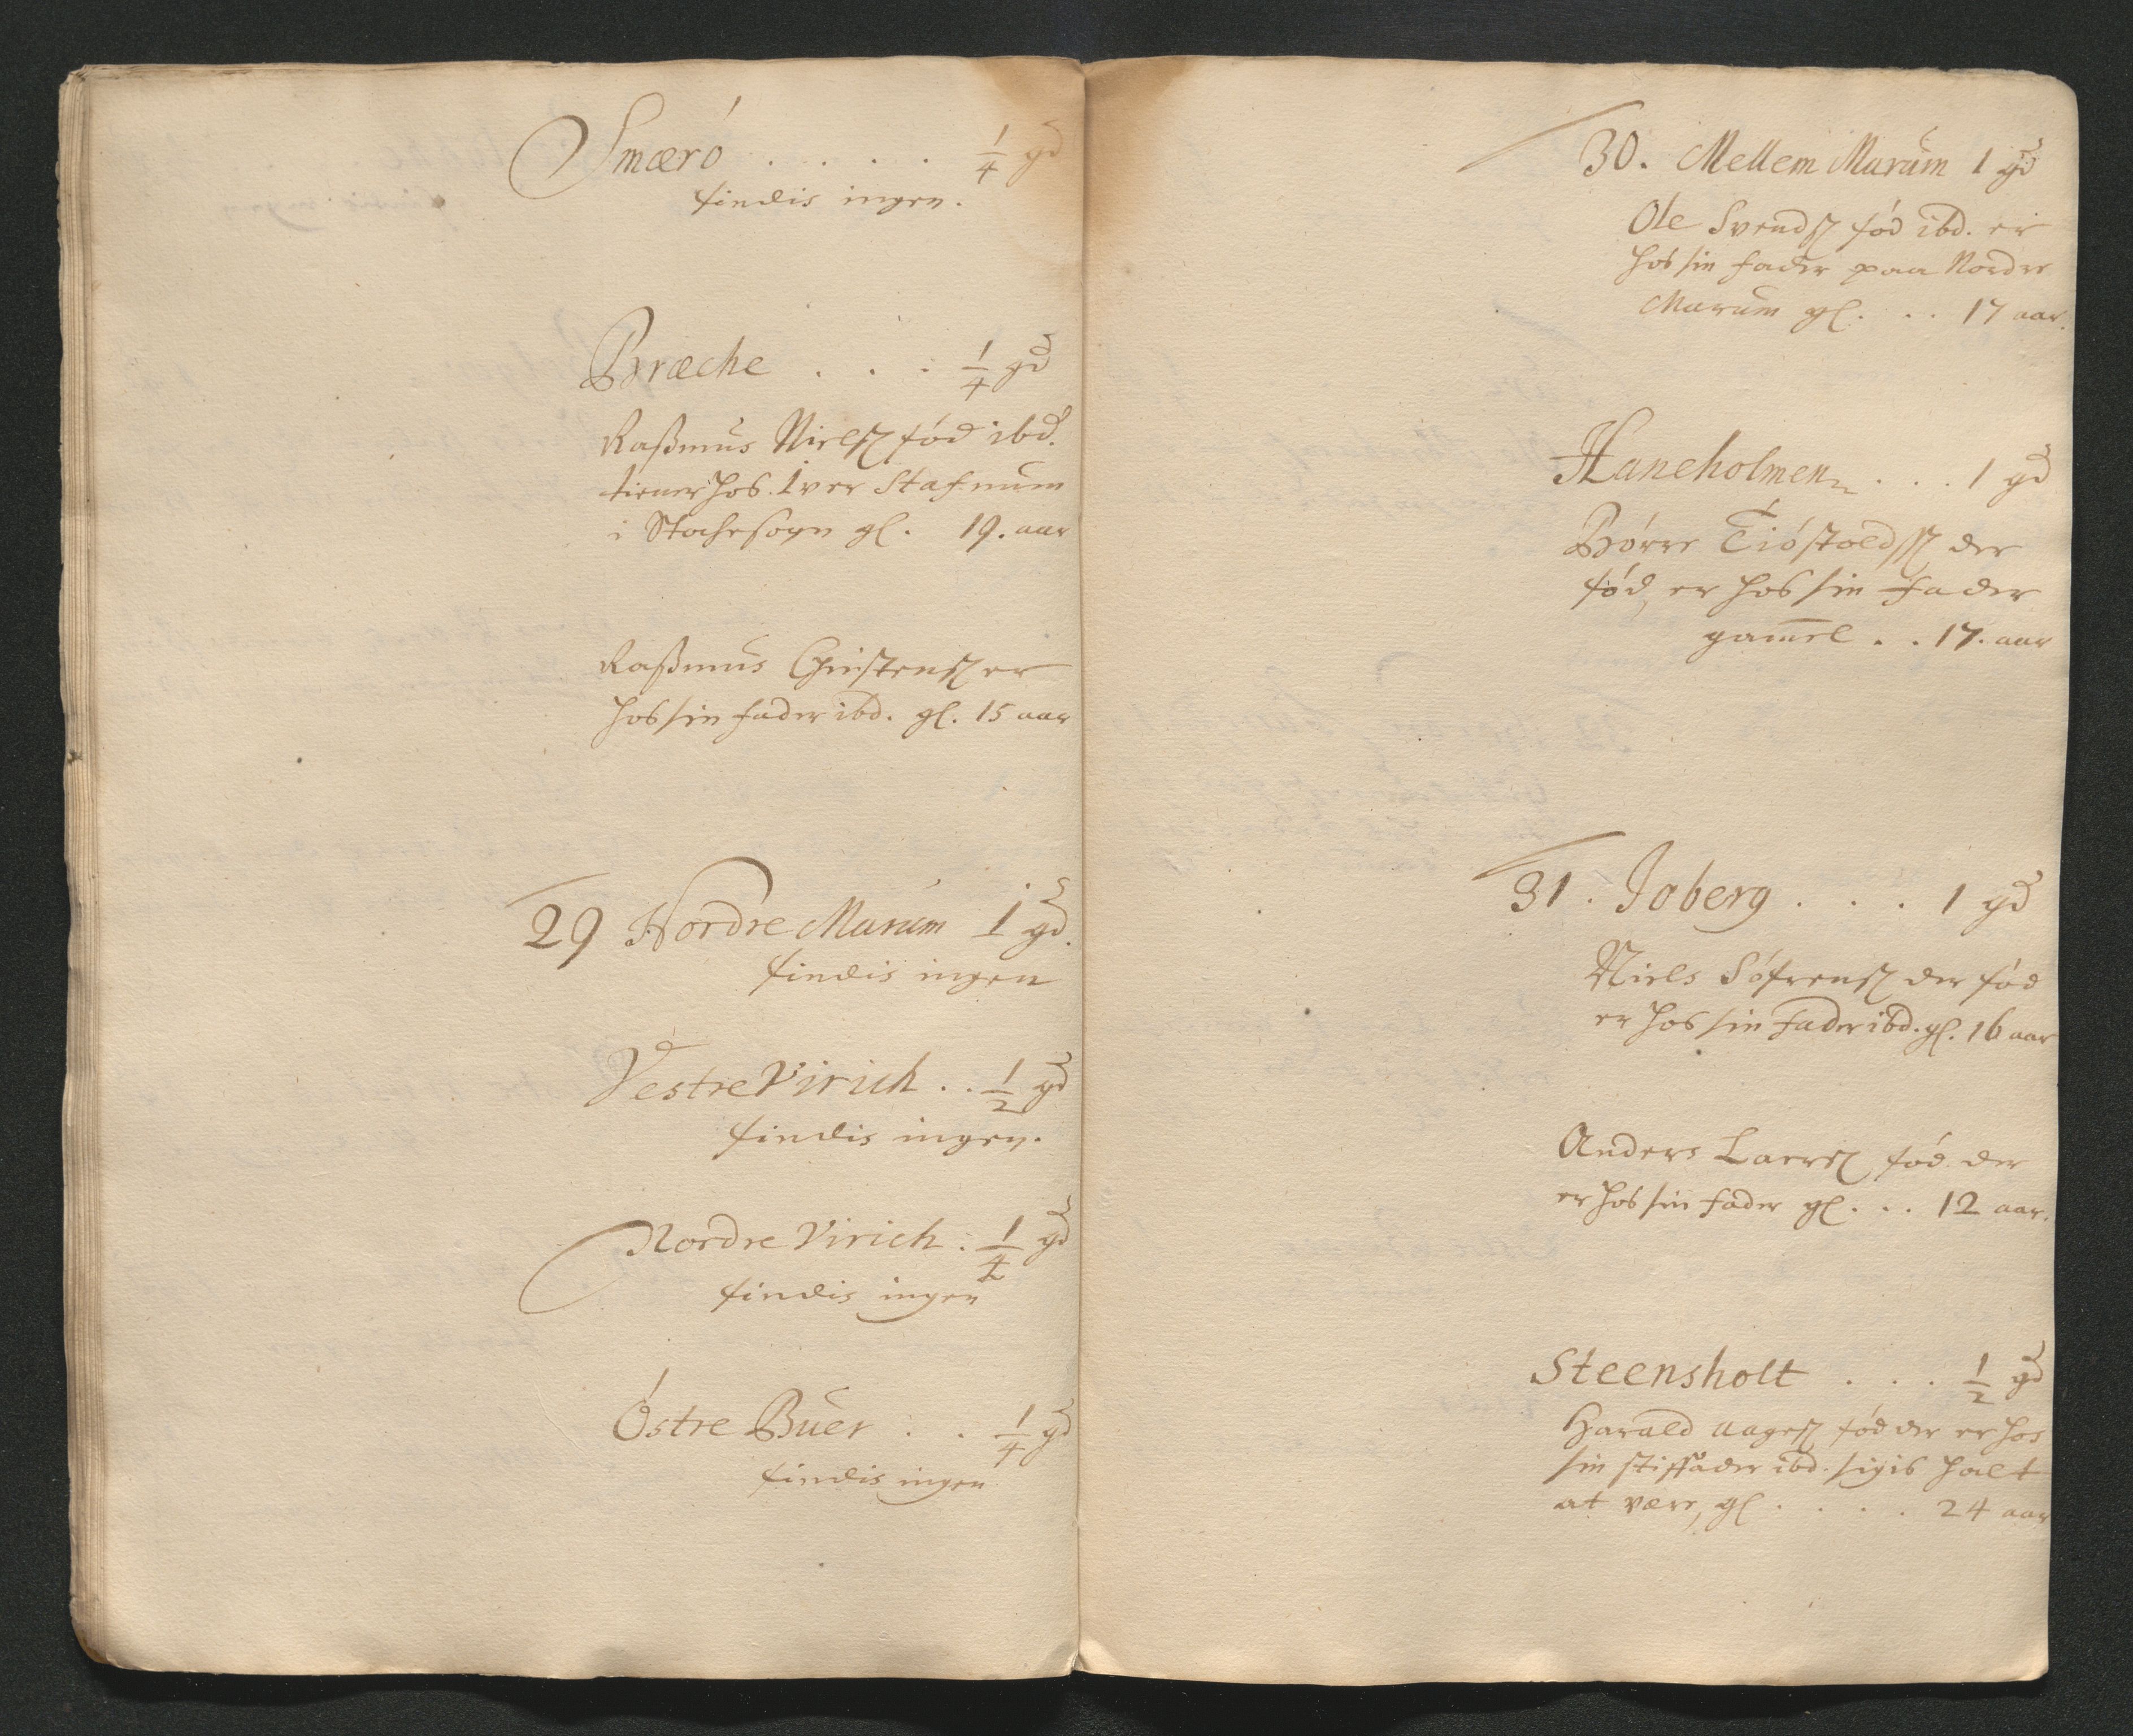 Smæró . . . . . 1/4 gd
findis ingen.
Bræche . . . 1/4 gd
Raßmus Nielsß fód ibd.
tiener hos Iver Stafnum
i Stochesogn gl. 19. aar
Raßmus Christensß er
hos sin fader ibd. gl. 15 aar
29 Nordre Marum 1 gd.
findis ingen
Vestre Virich . . 1/2 gd
findis ingen.
Nordre Virich . 1/4 gd
findis ingen
Óstre Buer . . 1/4 gd
findis ingen
30. Mellem Marum 1 gd
Ole Svendsß fód ibd. er
hos sin fader paa Nordre
Marum gl. . . 17 aar.
Haneholmen . . . 1 gd
Bórre Tióstoldsß der
fód, er hos sin fader
gam̅el . . 17. aar
31. Joberg . . . 1 gd
Niels Sófrensß der fód
er hos sin fader ibd. gl. 16 aar
Anders Larsß fód der
er hos sin fader gl. . . 12 aar.
Steensholt . . . 1/2 gd
Harald Aagesß fód der er hos
sin stiffader ibd. sigis halt
at være, gl . . . . 24 aar